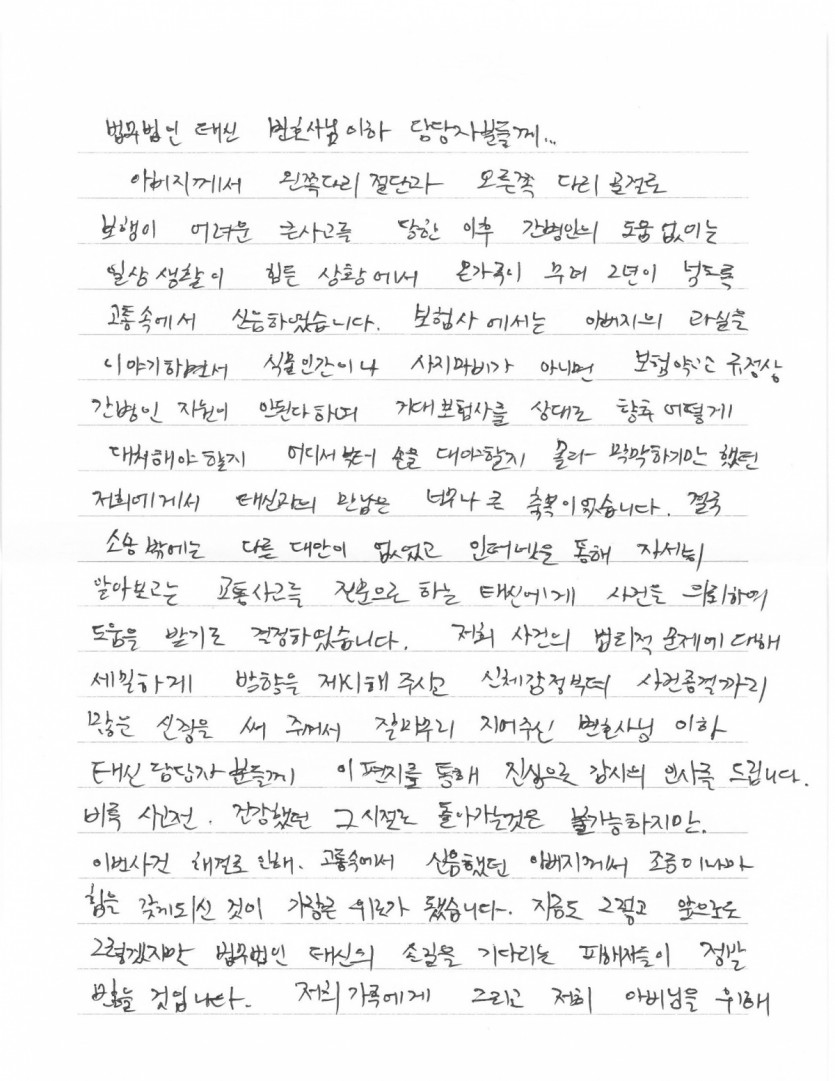 법무법인 태신 변호사님이하 담당자분들께...
아버지께서 왼쪽다리 절단과 오른쪽 다리 골절로
보행이 어려운 큰사고를 당한 이후 간병인의 도움 없이는
일상생활이 힘든 상황에서 온가족이 무려 2년이 넘도록
고통속에서 신음하였습니다. 보험사에서는 아버지의 과실을
이야기하면서 식물인간이나 사지마비가 아니면 보험약관 규정상
간병인 지원이 안된다하며 거대보험사를 상대로 향후 어떻게
대처해야 할지 어디서부터 손을 대야할지 몰라 막막하기만 했던
저희에게서 태신과의 만남은 너무나 큰 축복이었습니다. 결국
소송밖에는 다를 대안이 없었고 인터넷을 통해 자세히
알아보고는 교통사고를 전문으로 하는 태신에게 사건을 의뢰하여
도움을 받기로 결정하였습니다. 저희 사건의 법리적 문제에 대해
세밀하게 방향을 제시해 주시고 신체감정부터 사건종결까지
많은 신경을 써 주께서 잘마무리 지어주신 변호사님 이하
태신담당자 분들께 이 편지를 통해 진심으로 감사의 인사를 드립니다.
비록 사고전. 건강했던 그 시절로 돌아가는것은 불가능하지만.
이번사건 해결로 인해. 고통속에서 신음했던 아버지께서 조금이나마
힘을 갖게되신 것이 가장큰 위로가 됐습니다. 지금도 그렇고 앞으로도
그렇겠지만 법무법인 태신의 손길을 기다리는 피해자들이 정말
많을 것입니다. 저희가족에게 그리고 저희 아버님을 위해